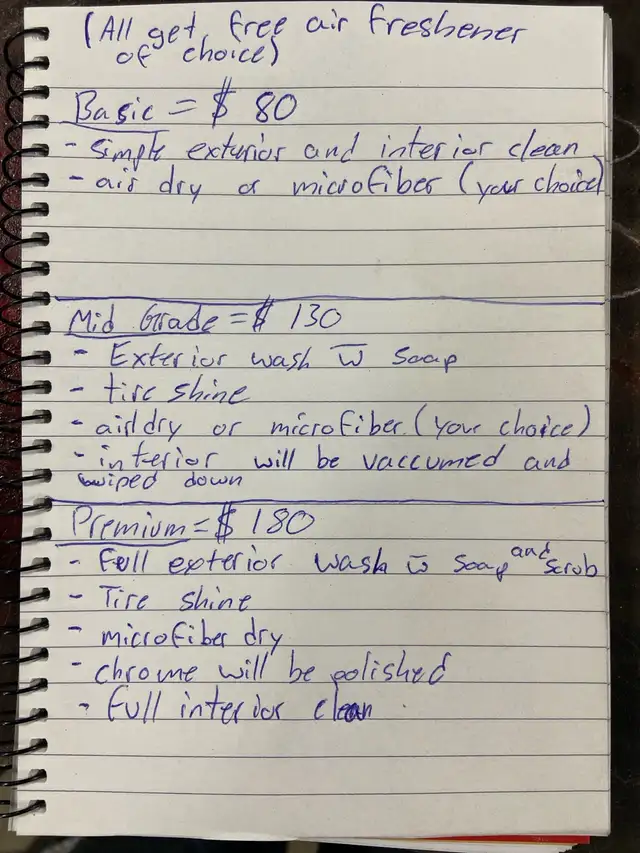 (All get free air freshener
of choice)
Basic = $ 80
- simple exterior and interior clean
- air dry or microfiber (your choice)
Mid Grade = $ 130
- Exterior wash w̅ soap
- tire shine
- air dry or microfiber (your choice)
- interior will be vaccumed and
wiped down
Premium = $ 180
- Full exterior wash w̅ soap and scrub
- Tire shine
- microfiber dry
- chrome will be polished
- Full interior clean